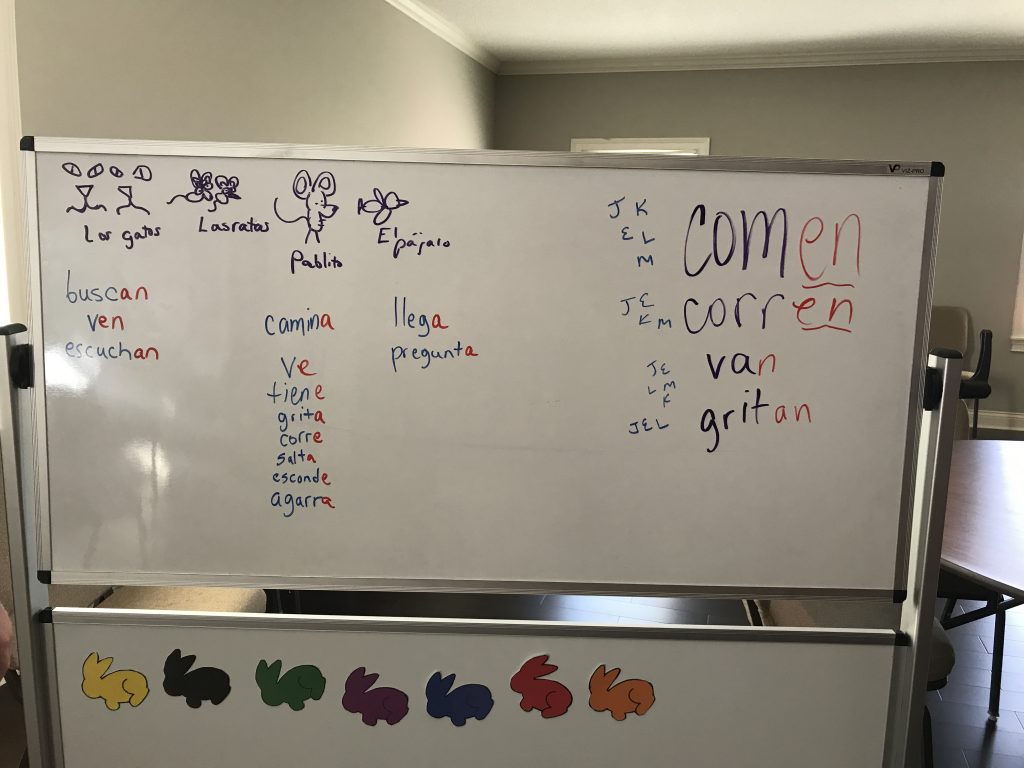 Los gatos
Las ratas
Pablito
El pájaro
buscan
ven
escuchan
camina
ve
tiene
grita
corre
salta
esconde
agarra
llega
pregunta
J K
E L
M
comen
J E
K M
corren
J E
L M
K
van
J E L
gritan
VIZ-PRO